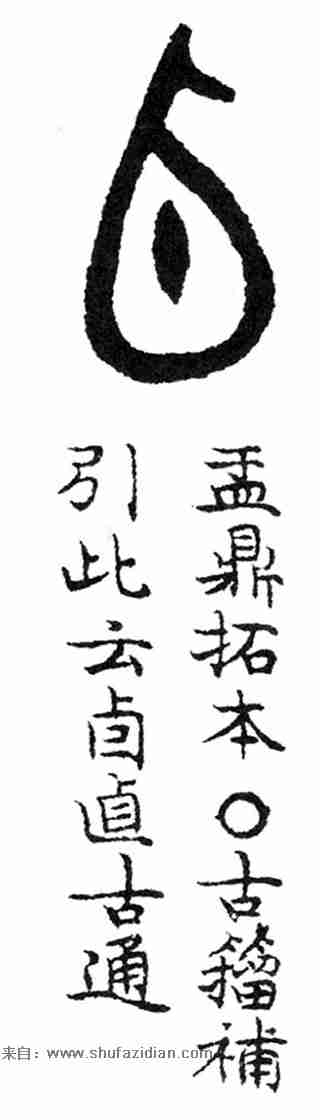 盂鼎拓本〇古籀補
引此云卣逌古通
来自：www.shufazidian.com